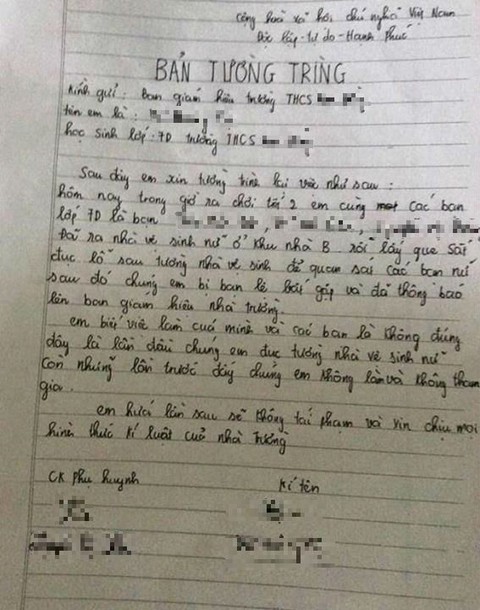 Cộng hoà xã hội chủ nghĩa Việt Nam
Độc lập-tự do-Hạnh Phúc
BẢN TƯỜNG TRÌNG
Kính gửi: Ban giám hiệu trường THCS
tên em là:
học sinh lớp: 7D trường THCS
Sau đây em xin tường trình lại việc như sau:
hôm nay trong giờ ra chơi tiết 2 em cùng các bạn
lớp 7D là bạn
Đã ra nhà vệ sinh nữ ở khu nhà B rồi lấy que sắt
đục lỗ sau tường nhà vệ sinh để quan sát các bạn nữ
sau đó chúng em bị bạn lê bắt gặp và đã thông báo
lên ban giám hiệu nhà trường.
em biết việc làm của mình và các bạn là không đúng
đây là lần đầu chúng em đục tường nhà vệ sinh nữ
còn những lần trước đây chúng em không làm và không tham
gia.
em hứa lần sau sẽ không tái phạm và xin chịu mọi
hình thức kỉ luật của nhà trường
CK phụ huynh
kí tên